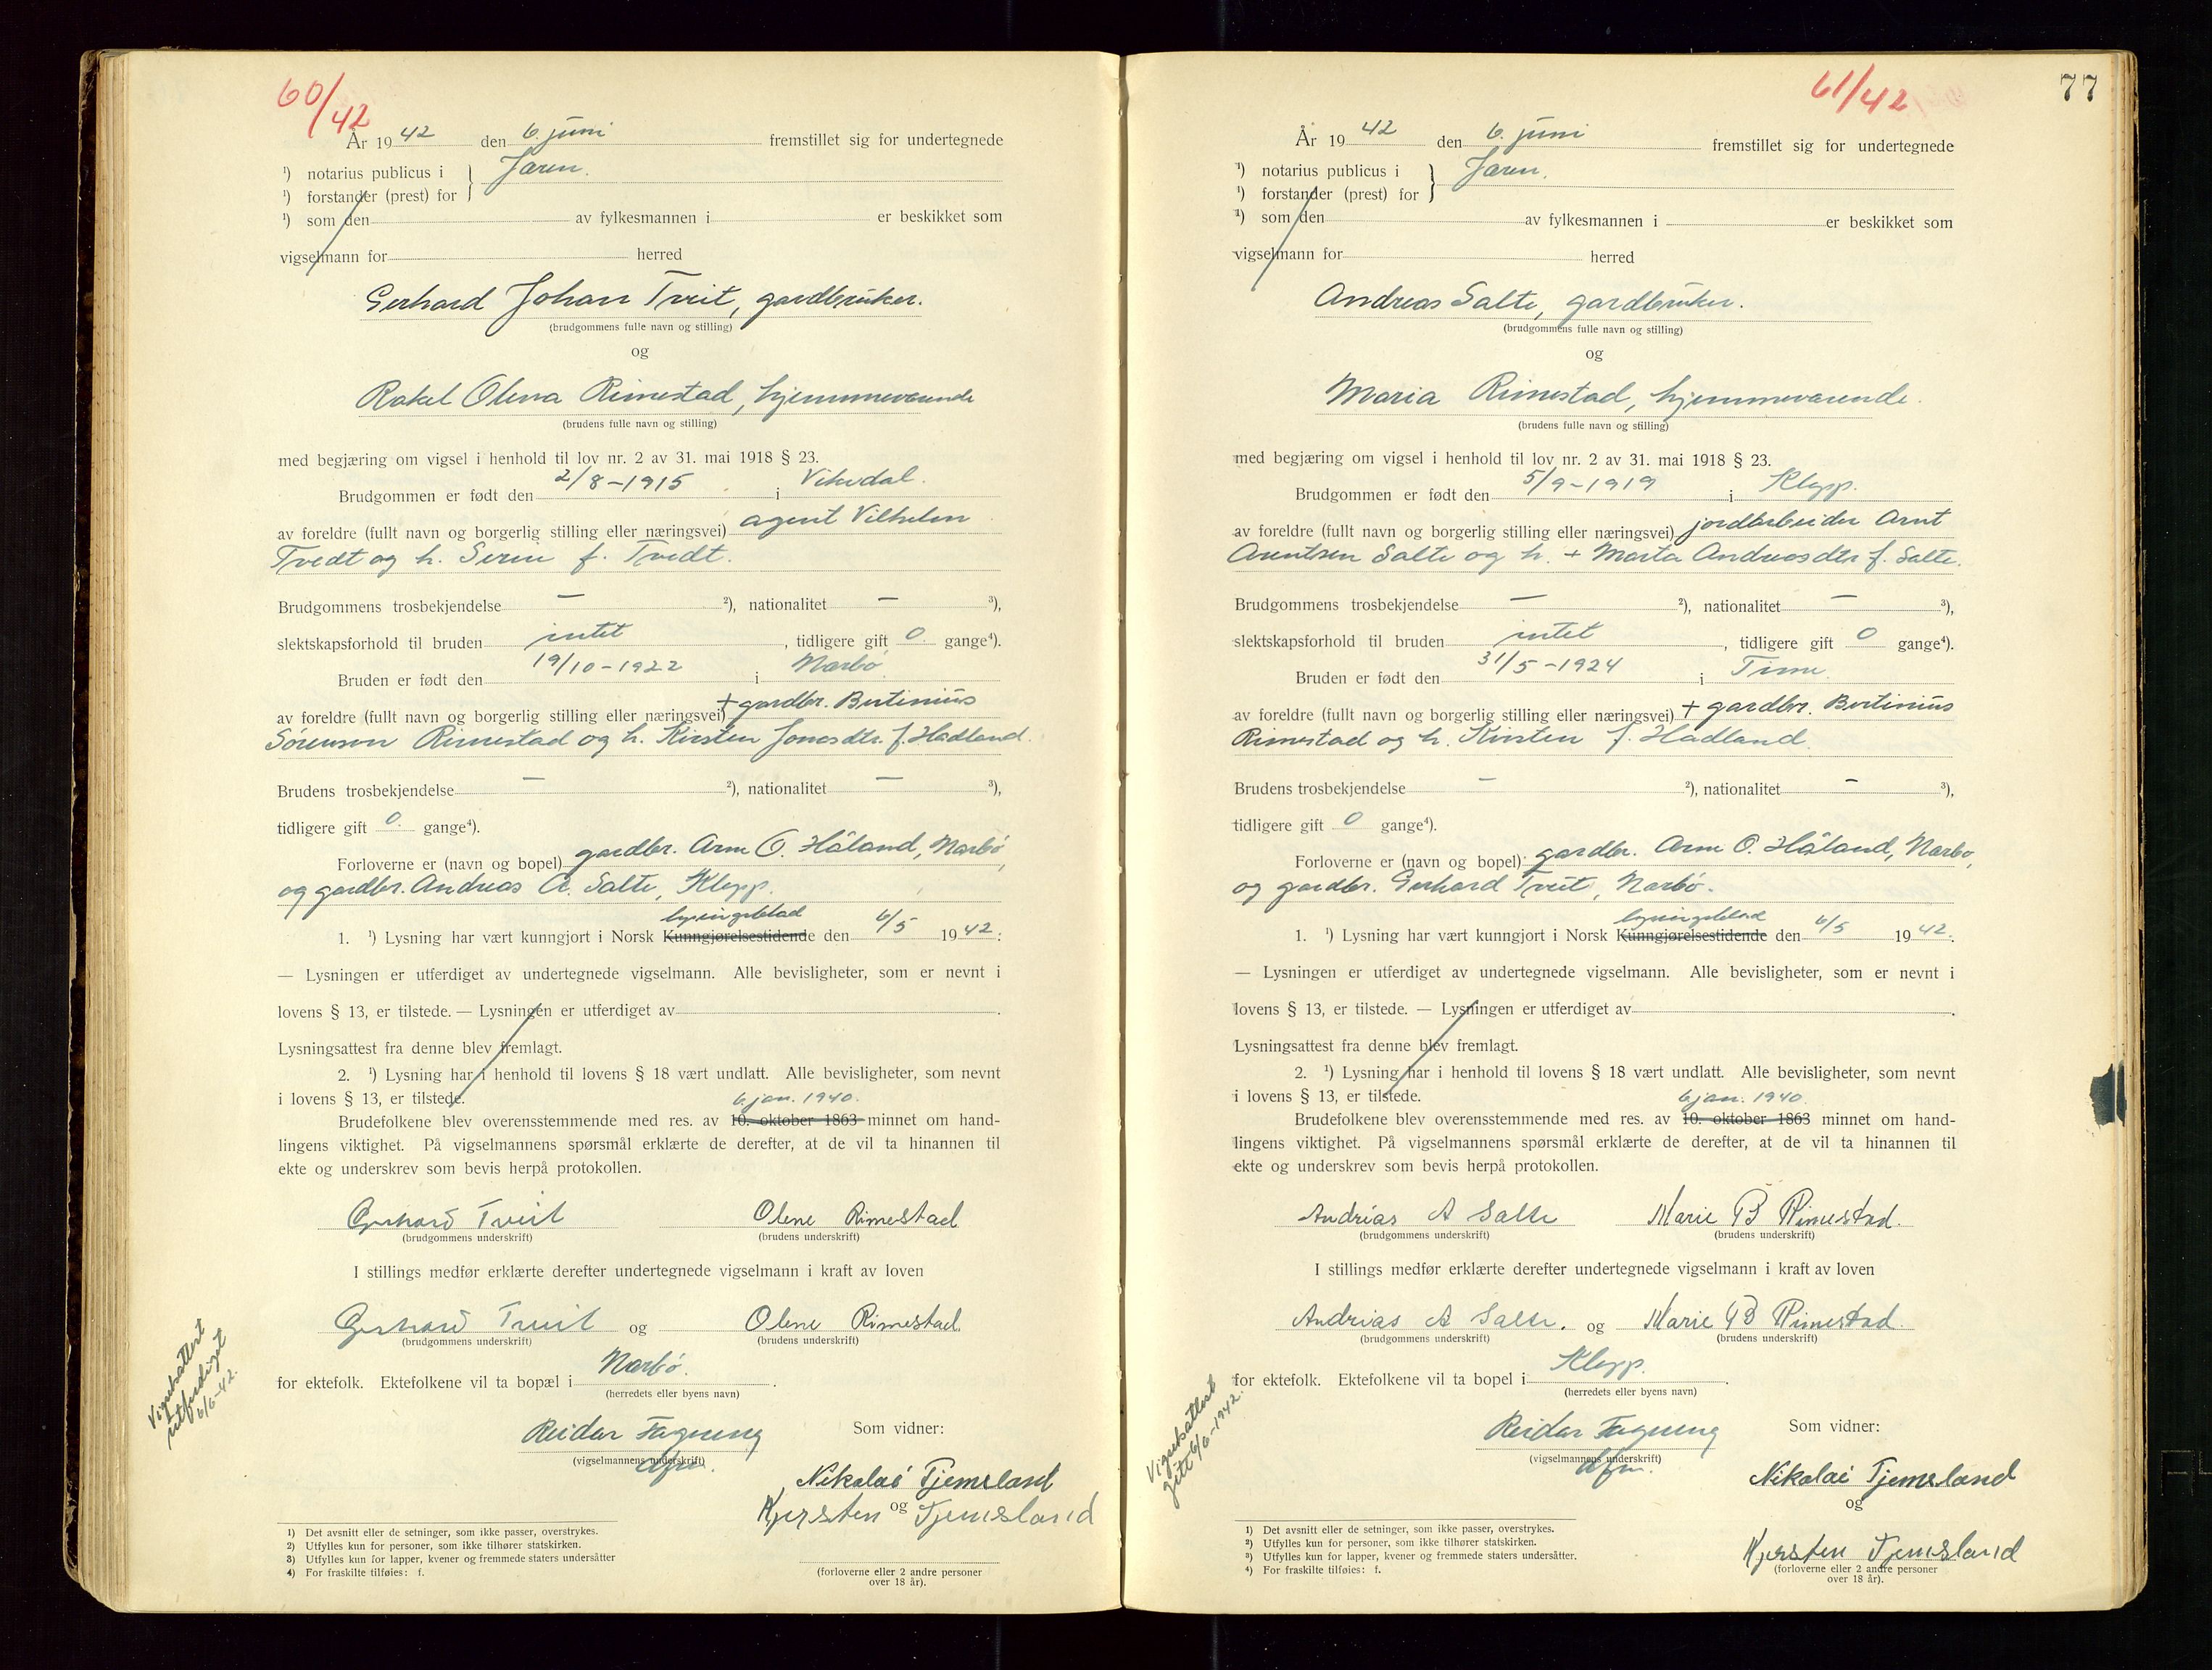 60/42
År 1942 den 6. juni fremstillet sig for undertegnede
¹) notarius publicus i } Jæren.
¹) forstander (prest) for
¹) som den av fylkesmannen i er beskikket som
vigselmann for herred
Gerhard Johan Tveit, gardbruker.
(brudgommens fulle navn og stilling)
og
Rakel Olena Rimestad, hjemmeværende
(brudens fulle navn og stilling)
med begjæring om vigsel i henhold til lov nr. 2 av 31. mai 1918 § 23.
Brudgommen er født den 2/8-1915 i Vikedal.
av foreldre (fullt navn og borgerlig stilling eller næringsvei) agent Vilhelm
Tvedt og h. Serine f. Tvedt.
Brudgommens trosbekjendelse — ²), nationalitet — ³),
slektskapsforhold til bruden intet, tidligere gift 0 gange⁴).
Bruden er født den 19/10-1922 i Nærbø
av foreldre (fullt navn og borgerlig stilling eller næringsvei) + gardbr. Bertinius
Sørensen Rimestad og h. Kirsten Jonasdtr. f. Hadland.
Brudens trosbekjendelse — ²), nationalitet — ³),
tidligere gift 0. gange⁴).
Forloverne er (navn og bopel) gardbr. Arne O. Håland, Nærbø,
og gardbr. Andreas A. Salte, Klepp.
lysingsblad
1. ¹) Lysning har vært kunngjort i Norsk Kunngjørelsestidende den 6/5 1942:
— Lysningen er utferdiget av undertegnede vigselmann. Alle bevisligheter, som er nevnt i
lovens § 13, er tilstede. — Lysningen er utferdiget av .
Lysningsattest fra denne blev fremlagt.
2. ¹) Lysning har i henhold til lovens § 18 vært undlatt. Alle bevisligheter, som nevnt
i lovens § 13, er tilstede. 6. jan. 1940.
Brudefolkene blev overensstemmende med res. av 10. oktober 1863 minnet om hand-
lingens viktighet. På vigselmannens spørsmål erklærte de derefter, at de vil ta hinannen til
ekte og underskrev som bevis herpå protokollen.
Gerhard Tveit Olene Rimestad
(brudgommens underskrift) (brudens underskrift)
I stillings medfør erklærte derefter undertegnede vigselmann i kraft av loven
Gerhard Tveit og Olene Rimestad.
(brudgommens underskrift) (brudens underskrift)
for ektefolk. Ektefolkene vil ta bopæl i Nærbø.
(herredets eller byens navn)
Vigselsattest
utferdiget
6/6-42.
Reidar Fagnung Som vidner:
(vigselmannens underskrift)
dfm.
Nikolai Tjemsland
og
Kjersten Tjemsland
1) Det avsnitt eller de setninger, som ikke passer, overstrykes.
2) Utfylles kun for personer, som ikke tilhører statskirken.
3) Utfylles kun for lapper, kvener og fremmede staters undersåtter
4) For fraskilte tilføies: f.
(forloverne eller 2 andre personer
over 18 år).
61/42
77
År 1942 den 6. juni fremstillet sig for undertegnede
¹) notarius publicus i } Jæren.
¹) forstander (prest) for
¹) som den av fylkesmannen i er beskikket som
vigselmann for herred
Andreas Salte, gardbruker.
(brudgommens fulle navn og stilling)
og
Maria Rimestad, hjemmeværende.
(brudens fulle navn og stilling)
med begjæring om vigsel i henhold til lov nr. 2 av 31. mai 1918 § 23.
Brudgommen er født den 5/9-1919 i Klepp.
av foreldre (fullt navn og borgerlig stilling eller næringsvei) jordarbeider Arnt
Arentsen Salte og h. + Marta Andreasdtr f. Salte.
Brudgommens trosbekjendelse — ²), nationalitet — ³),
slektskapsforhold til bruden intet, tidligere gift 0 gange⁴).
Bruden er født den 31/5-1924 i Time.
av foreldre (fullt navn og borgerlig stilling eller næringsvei) + gardbr. Bertinius
Rimestad og h. Kirsten f. Hadland.
Brudens trosbekjendelse — ²), nationalitet — ³),
tidligere gift 0 gange⁴).
Forloverne er (navn og bopel): gardbr. Arne O. Håland, Nærbø,
og gardbr. Gerhard Tveit, Nærbø.
lysingsblad
1. ¹) Lysning har vært kunngjort i Norsk Kunngjørelsestidende den 6/5 1942.
— Lysningen er utferdiget av undertegnede vigselmann. Alle bevisligheter, som er nevnt i
lovens § 13, er tilstede. — Lysningen er utferdiget av .
Lysningsattest fra denne blev fremlagt.
2. ¹) Lysning har i henhold til lovens § 18 vært undlatt. Alle bevisligheter, som nevnt
i lovens § 13, er tilstede. 6 jan. 1940.
Brudefolkene blev overensstemmende med res. av 10. oktober 1863 minnet om hand-
lingens viktighet. På vigselmannens spørsmål erklærte de derefter, at de vil ta hinannen til
ekte og underskrev som bevis herpå protokollen.
Andrias A Salte Marie B Rimestad.
(brudgommens underskrift) (brudens underskrift)
I stillings medfør erklærte derefter undertegnede vigselmann i kraft av loven
Andrias A Salte. og Marie B Rimestad.
(brudgommens underskrift) (brudens underskrift)
for ektefolk. Ektefolkene vil ta bopel i Klepp.
(herredets eller byens navn)
Vigselsattest
gitt 6/6-1942.
Reidar Fagnung Som vidner:
(vigselmannens underskrift)
dfm.
Nikolai Tjemsland
og
Kjersten Tjemsland
¹) Det avsnitt eller de setninger, som ikke passer, overstrykes.
²) Utfylles kun for personer, som ikke tilhører statskirken.
³) Utfylles kun for lapper, kvener og fremmede staters undersåtter.
⁴) For fraskilte tilføies: f.
(forloverne eller 2 andre personer
over 18 år).